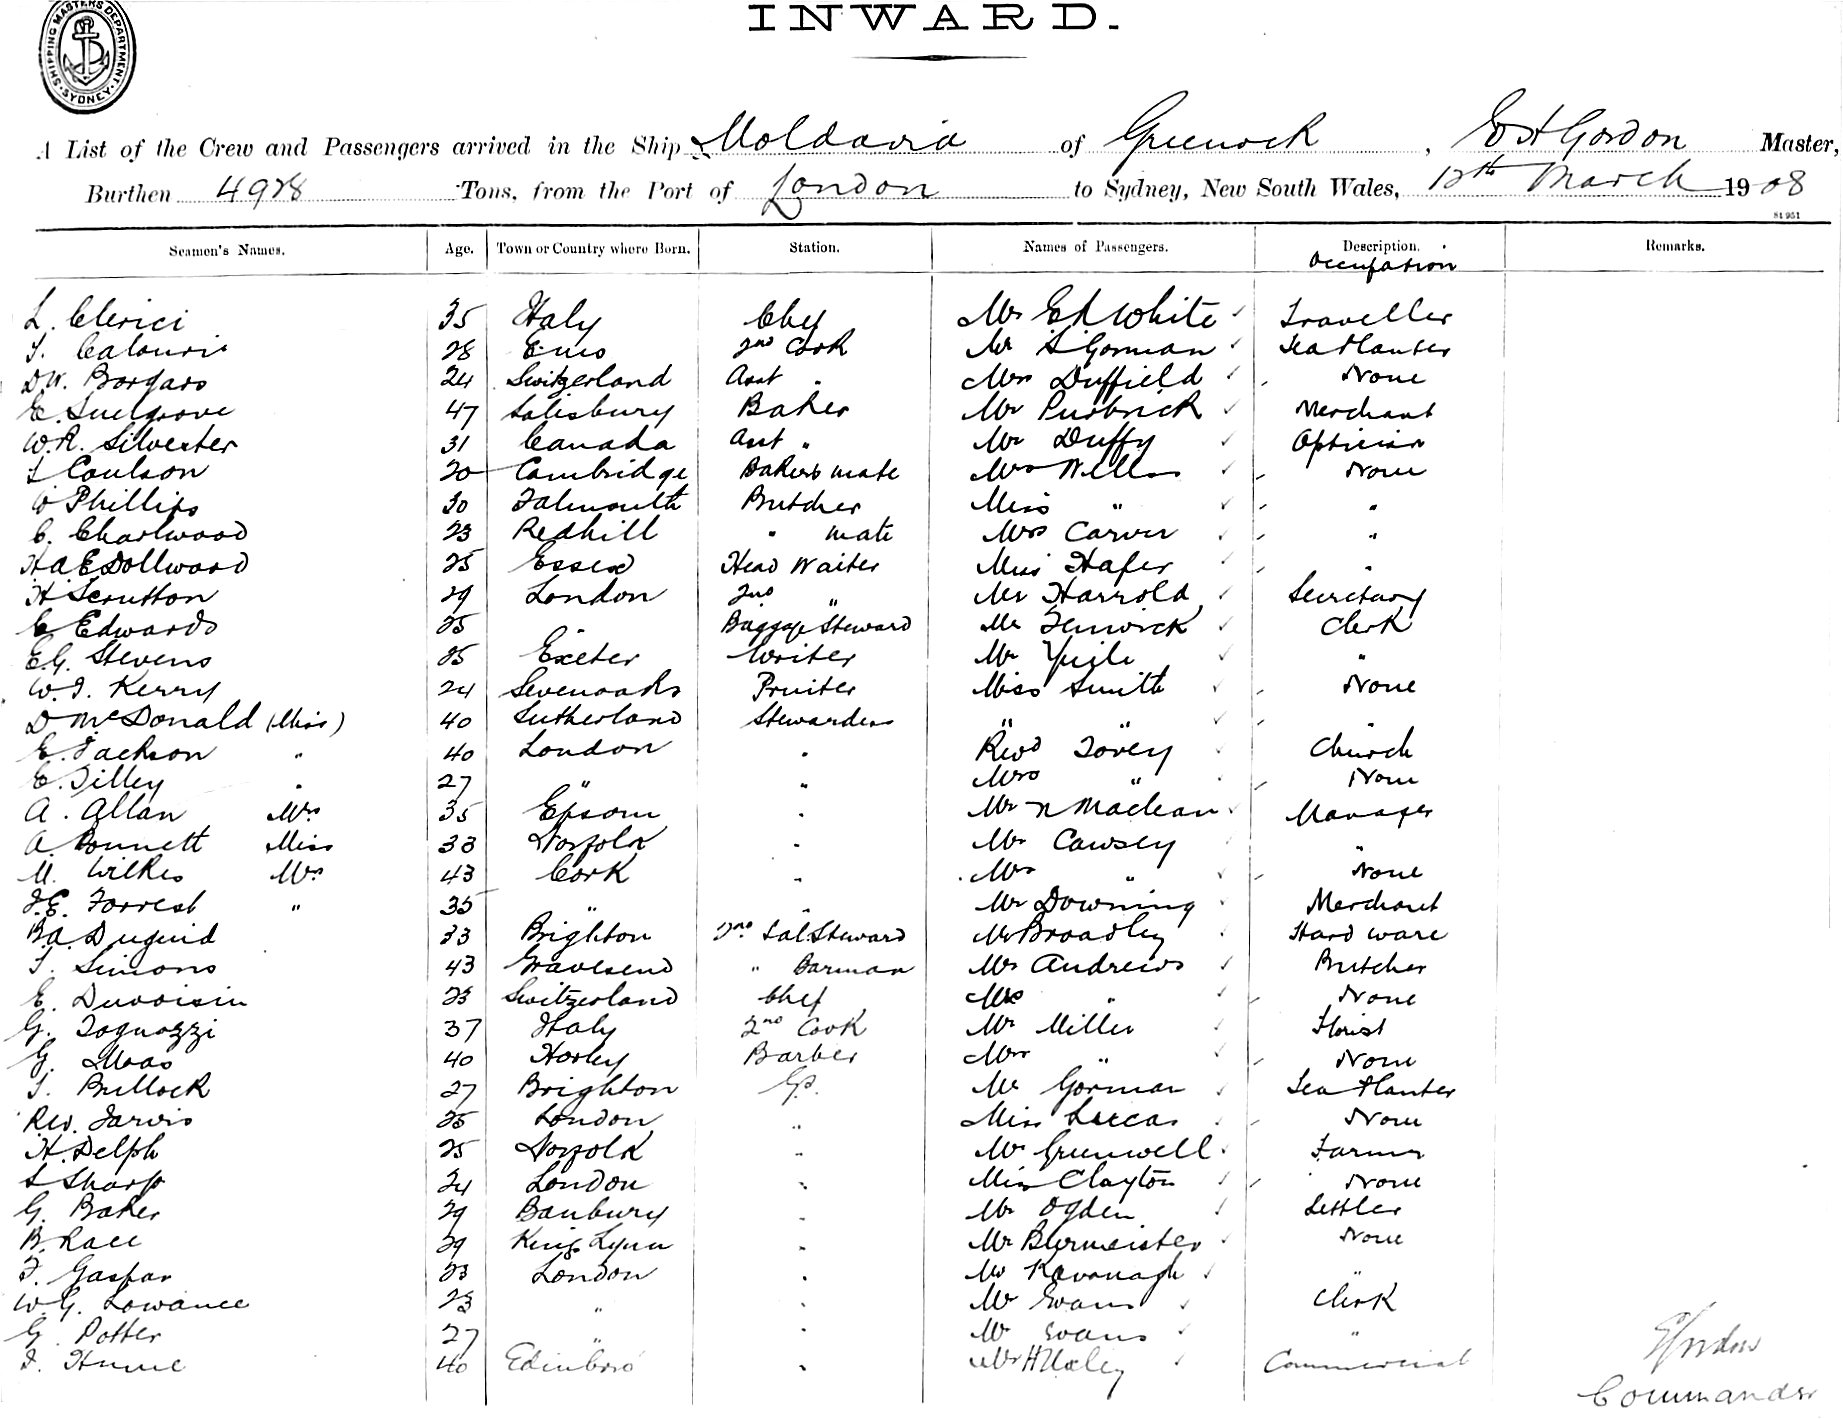 SHIPPING MASTERS DEPARTMENT. SYDNEY.
INWARD.
A List of the Crew and Passengers arrived in the Ship Moldavia of Greenock, E H Gordon Master,
Burthen 4928 Tons, from the Port of London to Sydney, New South Wales, 12th March 1908
Seamen's Names. Age. Town or Country where Born. Station. Names of Passengers. Description. Occupation Remarks.
L. Clerici 35 Italy Chef Mr White Traveller
28 2nd Cook Mr Gorman Tea Planter
24 Switzerland Asst " Mrs Duffield None
E. Snelgrove 47 Salisbury Baker Mr Purbrick Merchant
W.R. Silvester 31 Canada Asst " Mr Duffy Optician
Coulson 20 Cambridge Bakers mate Mrs Wells None
W Phillips 30 Falmouth Butcher Miss " "
C. Charlwood 23 Redhill " mate Mrs Carver "
H a E Dollwood 25 Essex Head Waiter Miss Hafer "
H Scrutton 29 London 2nd " Mr Harrold Secretary
E Edwards 25 " Baggage Steward Mr Fenwick Clerk
E.G. Stevens 25 Exeter Writer Mr "
W.J. Kerry 24 Sevenoaks Printer Miss Smith None
D McDonald (Miss) 40 Sutherland Stewardess " " "
E. Jackson " 40 London " Revd Tovey Church
E. Tilley " 27 " " Mrs " None
A. Allan Mrs 35 Epsom " Mr N Maclean Manager
A. Bonnett Miss 33 Norfolk " Mr Cawsey "
M. Wilkes Mrs 43 Cork " Mrs " None
J.E. Forrest " 35 " " Mr Downing Merchant
B.A. Duguid 33 Brighton 2nd Sal. Steward Mr Broadley Hard ware
T. Simons 43 Gravesend " Barman Mr Andrews Butcher
E. Duvoisin 23 Switzerland Chef Mrs " None
G. Tognazzi 37 Italy 2nd Cook Mr Miller Florist
G. Maas 40 Horley Barber Mrs " None
T. Bullock 27 Brighton G.S. Mr Gorman Tea Planter
Jarvis 25 London " Miss Luccas None
H. Delph 25 Norfolk " Mr Greenwell Farmer
S Sharp 24 London " Miss Clayton None
G. Baker 29 Banbury " Mr Ogden Settler
B. Race 29 Kings Lynn " Mr Burmeister None
F. Gaspar 23 London " Mr Kavanagh "
W.G. Lowance 23 " " Mr Evans Clerk
G. Potter 27 " " Mr Evans "
J. Hume 40 Edinboro " Mr Commercial
Gordon
Commander